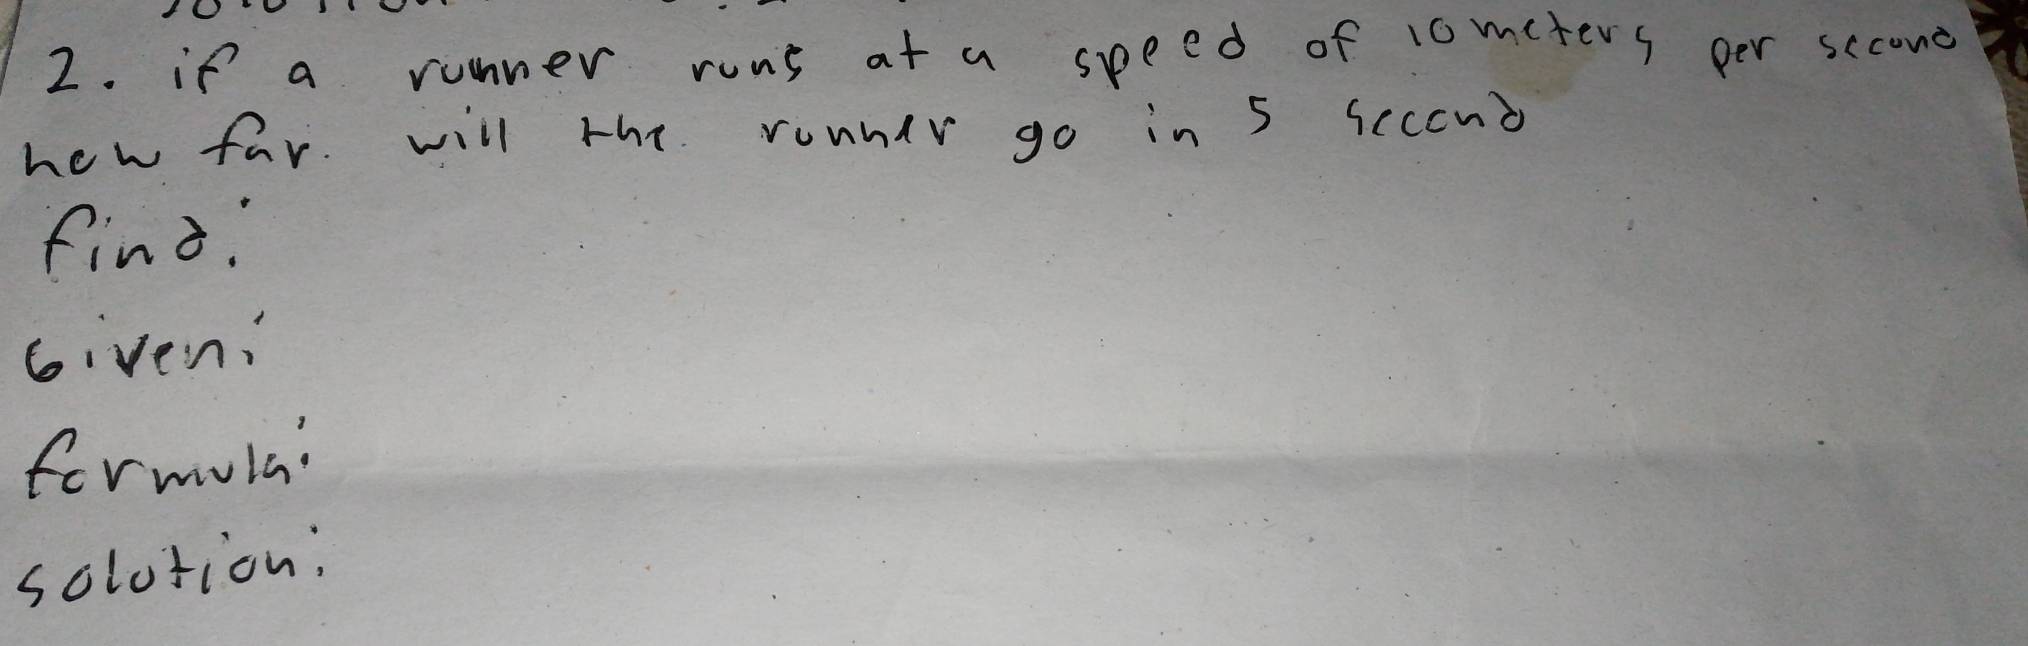 2. if a runner runs at a speed of 10 meters per second
how far will the runner go in 5 second
find:
Given:
formula:
solution: